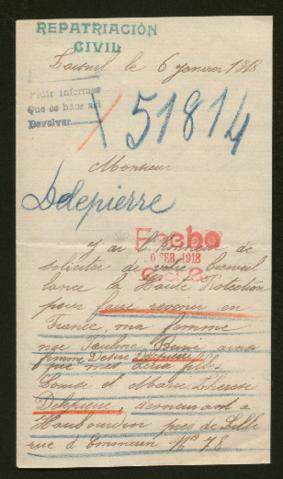 REPATRIACIÓN
CIVIL
le 6 janvier 1918
Pedir informes
Que se hace así
Devolver
51814
Monsieur
Delepierre
Fecho
9 FEB. 1918
J'ai l'honneur de
soliciter de votre bienveil
lance la Haute Protection
pour faire revenir en
France, ma femme
née Pauline ainsi
femme Delepierre
que mes deux filles
Louise et Marie-Thérèse
Delepierre, demeurant a
Haubourdin près de Lille
rue d'Emmerin No 78